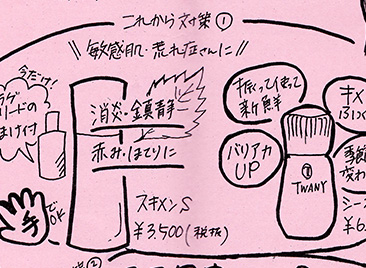 これから対策①
\\ 敏感肌・荒れ症さんに //
今だけ!
ラゲ
リードの
まけ付
消炎・鎮静
赤み・ほてりに
スキメンS
¥3,500(税抜)
手でOK
振って使って
新鮮
バリアカ
UP
T
TWANY
キメ
季節
変わ
シー
¥6
②